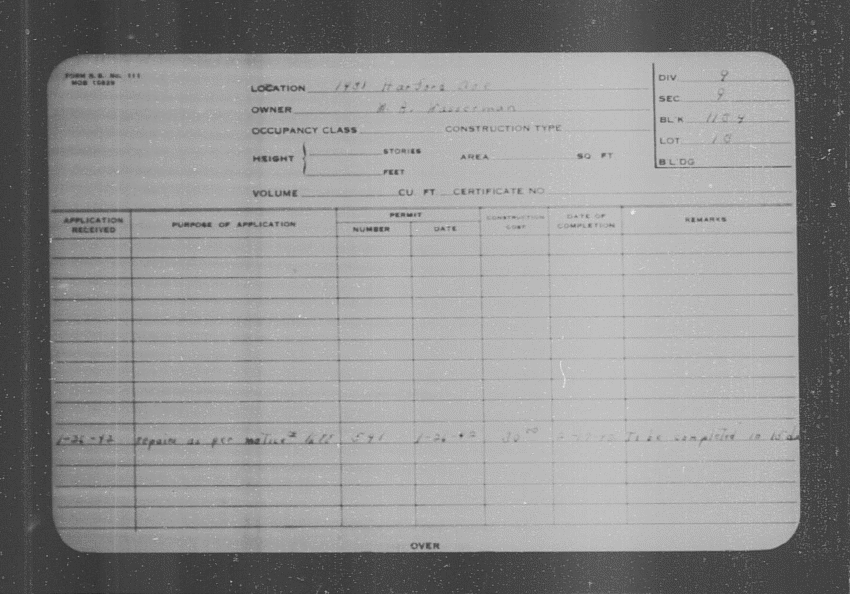 FORM S. S. No. 111
MOB 10829
LOCATION 1931 Harford Ave
OWNER Wasserman
OCCUPANCY CLASS CONSTRUCTION TYPE
HEIGHT STORIES AREA SQ. FT
FEET
VOLUME CU. FT. CERTIFICATE NO
DIV 9
SEC 9
BLK
LOT 10
BLDG
APPLICATION RECEIVED PURPOSE OF APPLICATION PERMIT NUMBER DATE CONSTRUCTION COST DATE OF COMPLETION REMARKS
1-26-42 repairs as per notice # 541 1-26-42 30.00 To be completed in 15 da
OVER